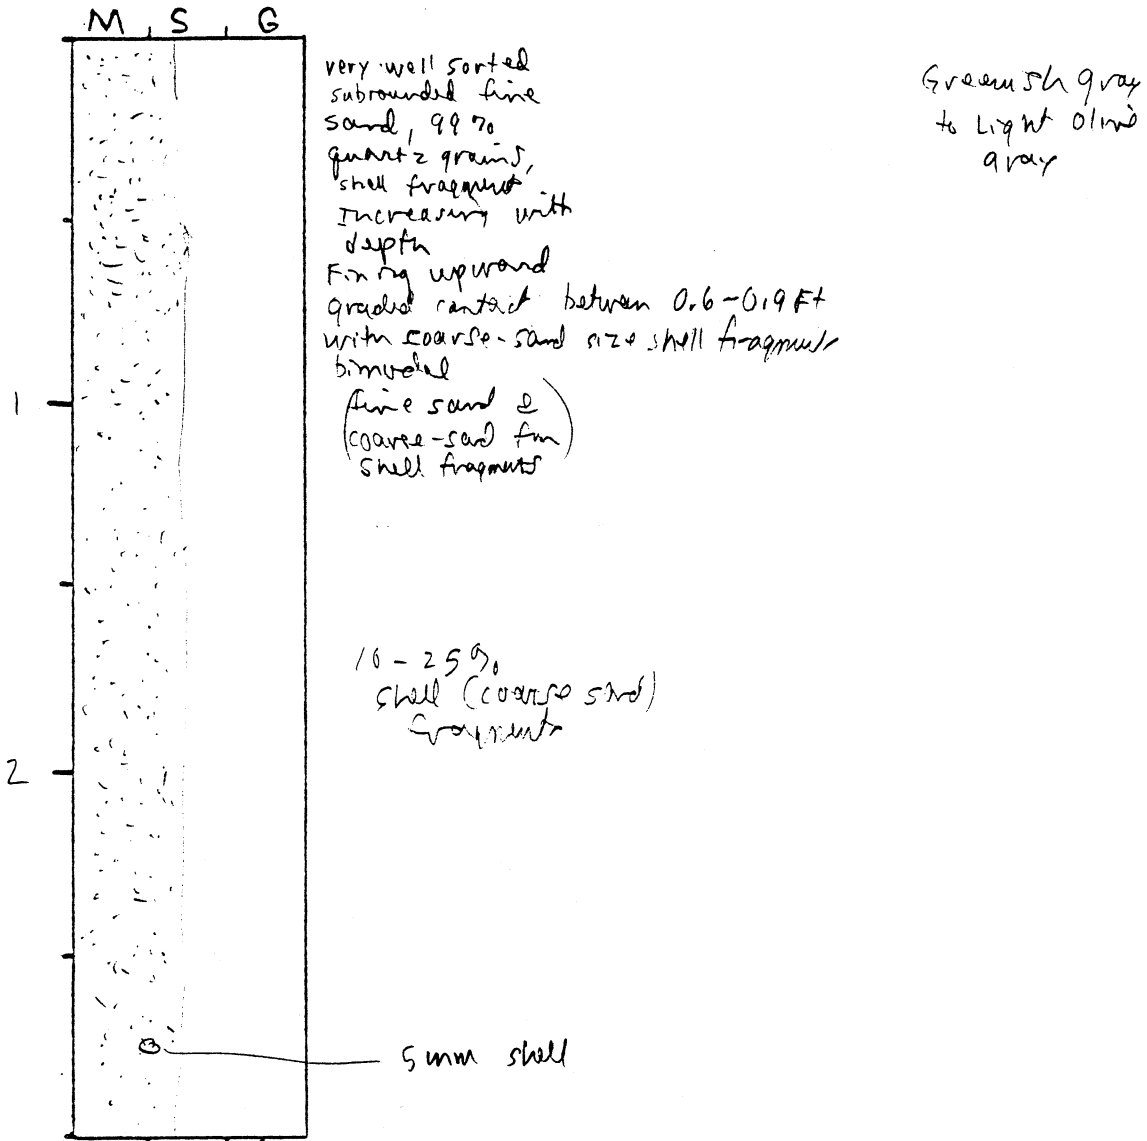 M S G
very well sorted
subrounded fine
sand, 99%
quartz grains,
shell fragment
Increasing with
depth
Fining upward
graded contact between 0.6-0.9 Ft
with coarse-sand size shell fragments
bimodal
(fine sand &
coarse-sand fm
shell fragments)
Greenish gray
to Light Olive
gray
1
10-25%
shell (coarse sand)
fragments
2
5mm shell